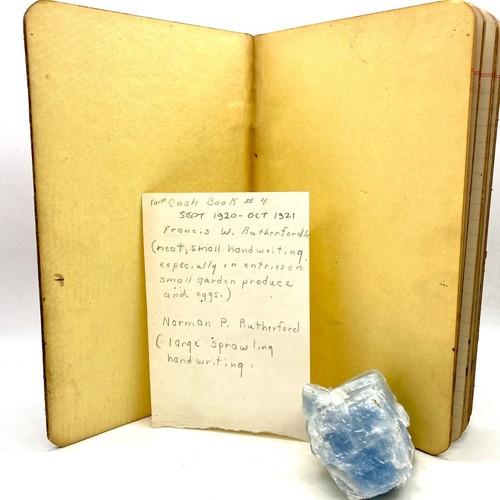 Farm Cash Book # 4
SEPT 1920-OCT 1921
Francis W. Rutherford
(neat, small handwriting,
especially in entries on
small garden produce
and eggs.)
Norman P. Rutherford
(large sprawling
handwriting.